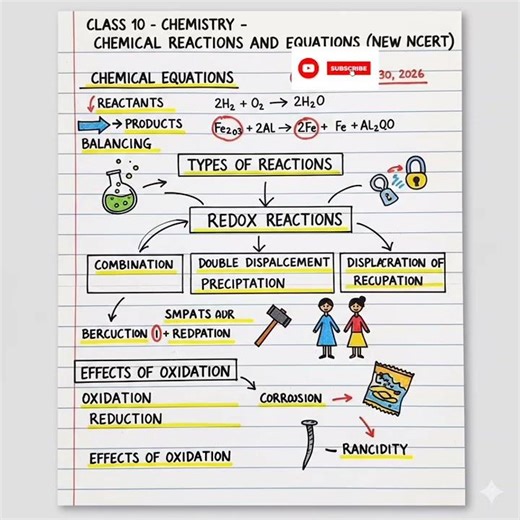 CLASS 10 - CHEMISTRY -
CHEMICAL REACTIONS AND EQUATIONS (NEW NCERT)
SUBSCRIBE
CHEMICAL EQUATIONS
30, 2026
REACTANTS 2H₂ + O₂ → 2H₂O
→ PRODUCTS Fe₂₀₃ + 2AL → 2Fe + Fe + AL₂QO
BALANCING
TYPES OF REACTIONS
REDOX REACTIONS
COMBINATION
DOUBLE DISPALCEMENT
PRECIPTATION
DISPLÆRATION OF
RECUPATION
SMPATS AUR
BERCUCTION 1 + REDPATION
EFFECTS OF OXIDATION
OXIDATION
REDUCTION
CORROSION →
EFFECTS OF OXIDATION
RANCIDITY